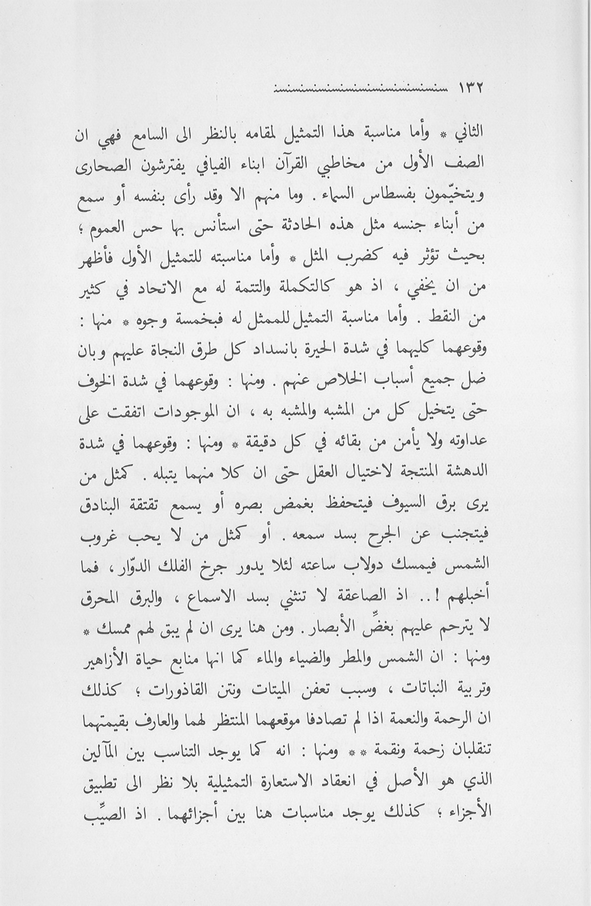 ١٣٢
الثاني * وأما مناسبة هذا التمثيل لمقامه بالنظر الى السامع فهي ان
الصف الأول من مخاطبي القرآن ابناء الفيافي يفترشون الصحارى
ويتخيّمون بفسطاس السماء . وما منهم الا وقد رأى بنفسه أو سمع
من أبناء جنسه مثل هذه الحادثة حتى استأنس بها حس العموم ؛
بحيث تؤثر فيه كضرب المثل * وأما مناسبته للتمثيل الأول فأظهر
من ان يخفي ، اذ هو كالتكملة والتتمة له مع الاتحاد في كثير
من النقط . وأما مناسبة التمثيل للممثل له فبخمسة وجوه * منها :
وقوعهما كليهما في شدة الحيرة بانسداد كل طرق النجاة عليهم وبان
ضل جميع أسباب الخلاص عنهم . ومنها : وقوعهما في شدة الخوف
حتى يتخيل كل من المشبه والمشبه به ، ان الموجودات اتفقت على
عداوته ولا يأمن من بقائه في كل دقيقة * ومنها : وقوعهما في شدة
الدهشة المنتجة لاختيال العقل حتى ان كلا منهما يتبله . كمثل من
يرى برق السيوف فيتحفظ بغمض بصره أو يسمع تقتقة البنادق
فيتجنب عن الجرح بسد سمعه . أو كمثل من لا يحب غروب
الشمس فيمسك دولاب ساعته لئلا يدور جرخ الفلك الدوّار ، فما
أخبلهم !.. اذ الصاعقة لا تنثني بسد الاسماع ، والبرق المحرق
لا يترحم عليهم بغضِّ الأبصار . ومن هنا يرى ان لم يبق لهم ممسك *
ومنها : ان الشمس والمطر والضياء والماء كما انها منابع حياة الأزاهير
وتربية النباتات ، وسبب تعفن الميتات ونتن القاذورات ؛ كذلك
ان الرحمة والنعمة اذا لم تصادفا موقعهما المنتظر لهما والعارف بقيمتهما
تنقلبان زحمة ونقمة * * ومنها : انه كما يوجد التناسب بين المآلين
الذي هو الأصل في انعقاد الاستعارة التمثيلية بلا نظر الى تطبيق
الأجزاء ؛ كذلك يوجد مناسبات هنا بين أجزائهما . اذ الصيِّب